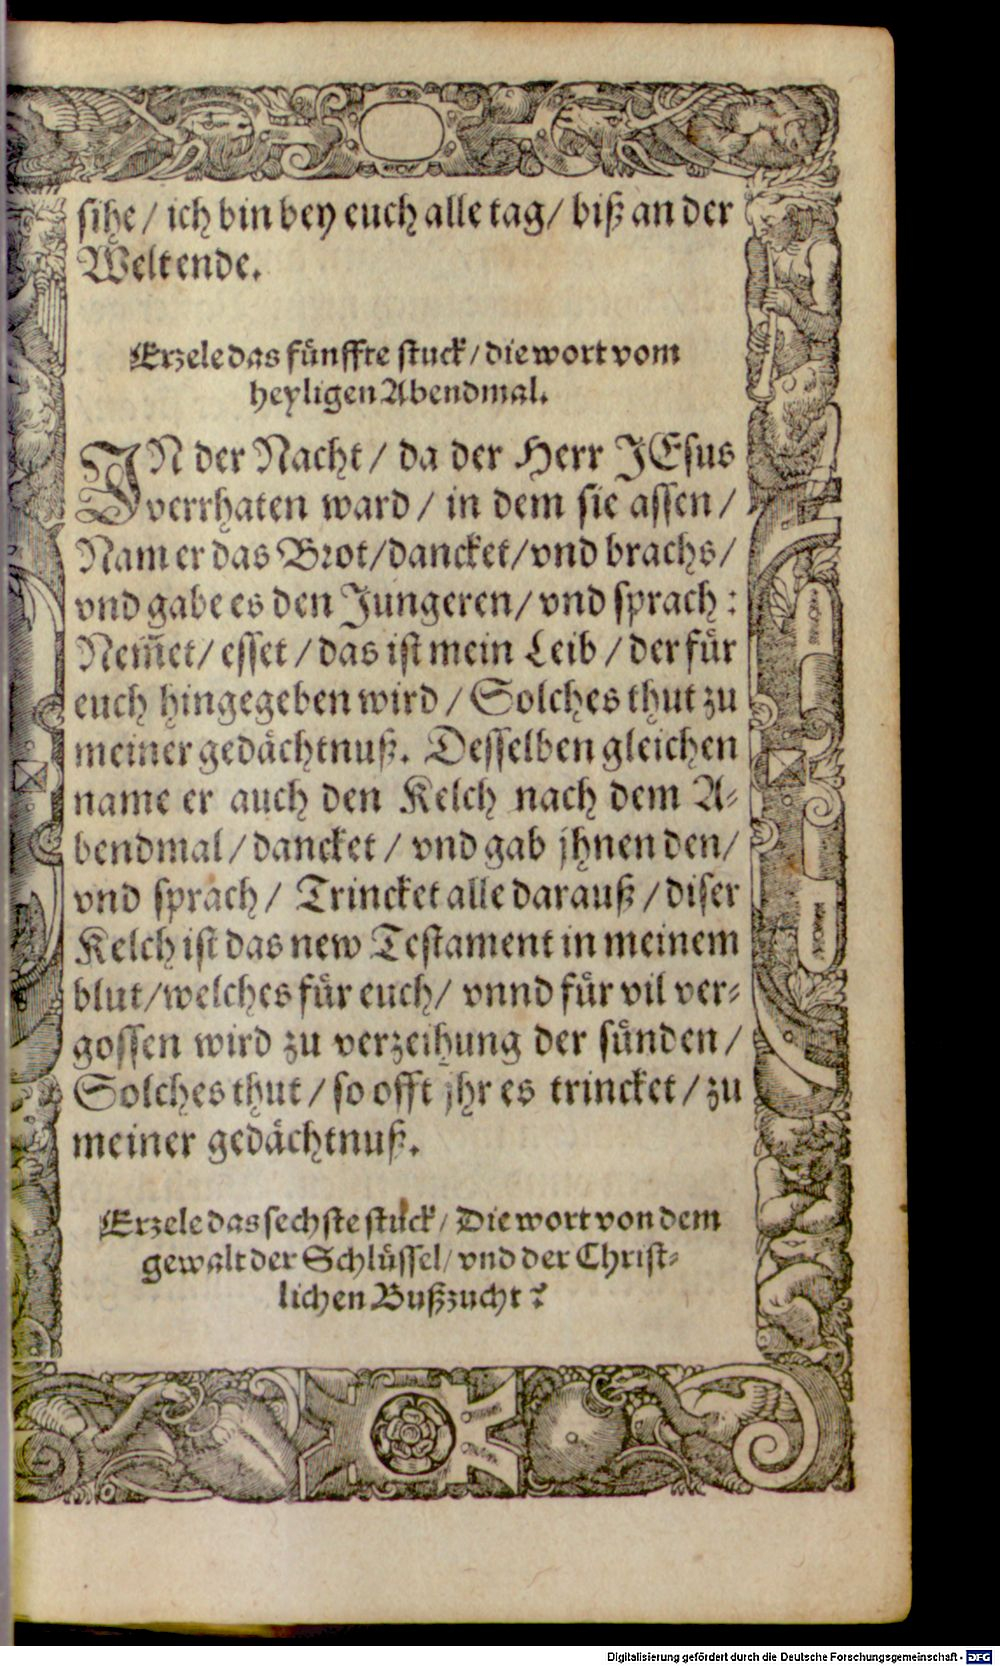 sihe / ich bin bey euch alle tag / biß an der
Welt ende.
Erzele das fünffte stuck / die wort vom
heyligen Abendmal.
IN der Nacht / da der Herr JEsus
verrhaten ward / in dem sie assen /
Nam er das Brot / dancket / vnd brachs /
vnd gabe es den Jungeren / vnd sprach :
Nem̃et / esset / das ist mein Leib / der für
euch hingegeben wird / Solches thut zu
meiner gedächtnuß. Desselben gleichen
name er auch den Kelch nach dem A⸗
bendmal / dancket / vnd gab jhnen den /
vnd sprach / Trincket alle darauß / diser
Kelch ist das new Testament in meinem
blut / welches für euch / vnnd für vil ver⸗
gossen wird zu verzeihung der sünden /
Solches thut / so offt jhr es trincket / zu
meiner gedächtnuß.
Erzele das sechste stuck / Die wort von dem
gewalt der Schlüssel / vnd der Christ⸗
lichen Bußzucht ?
Digitalisierung gefördert durch die Deutsche Forschungsgemeinschaft - DFG